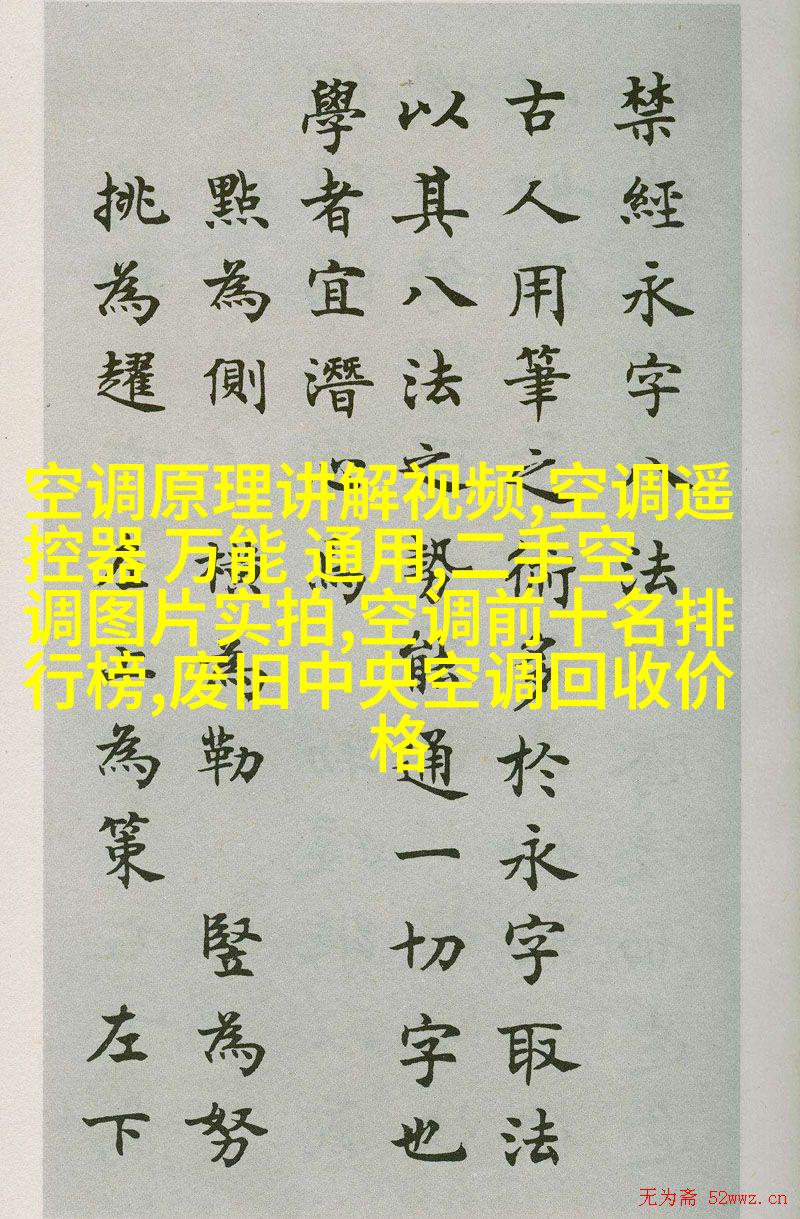 禁經永字八法
古人用筆之術多於永字取法
以其八法之勢能通一切字也
學者宜潛心焉
點為側 橫為勒 豎為努
挑為趯 左上為策 左下
空调原理讲解视频,空调遥
控器 万能 通用,二手空
调图片实拍,空调前十名排
行榜,废旧中央空调回收价
格
无为斋 52wwz.cn